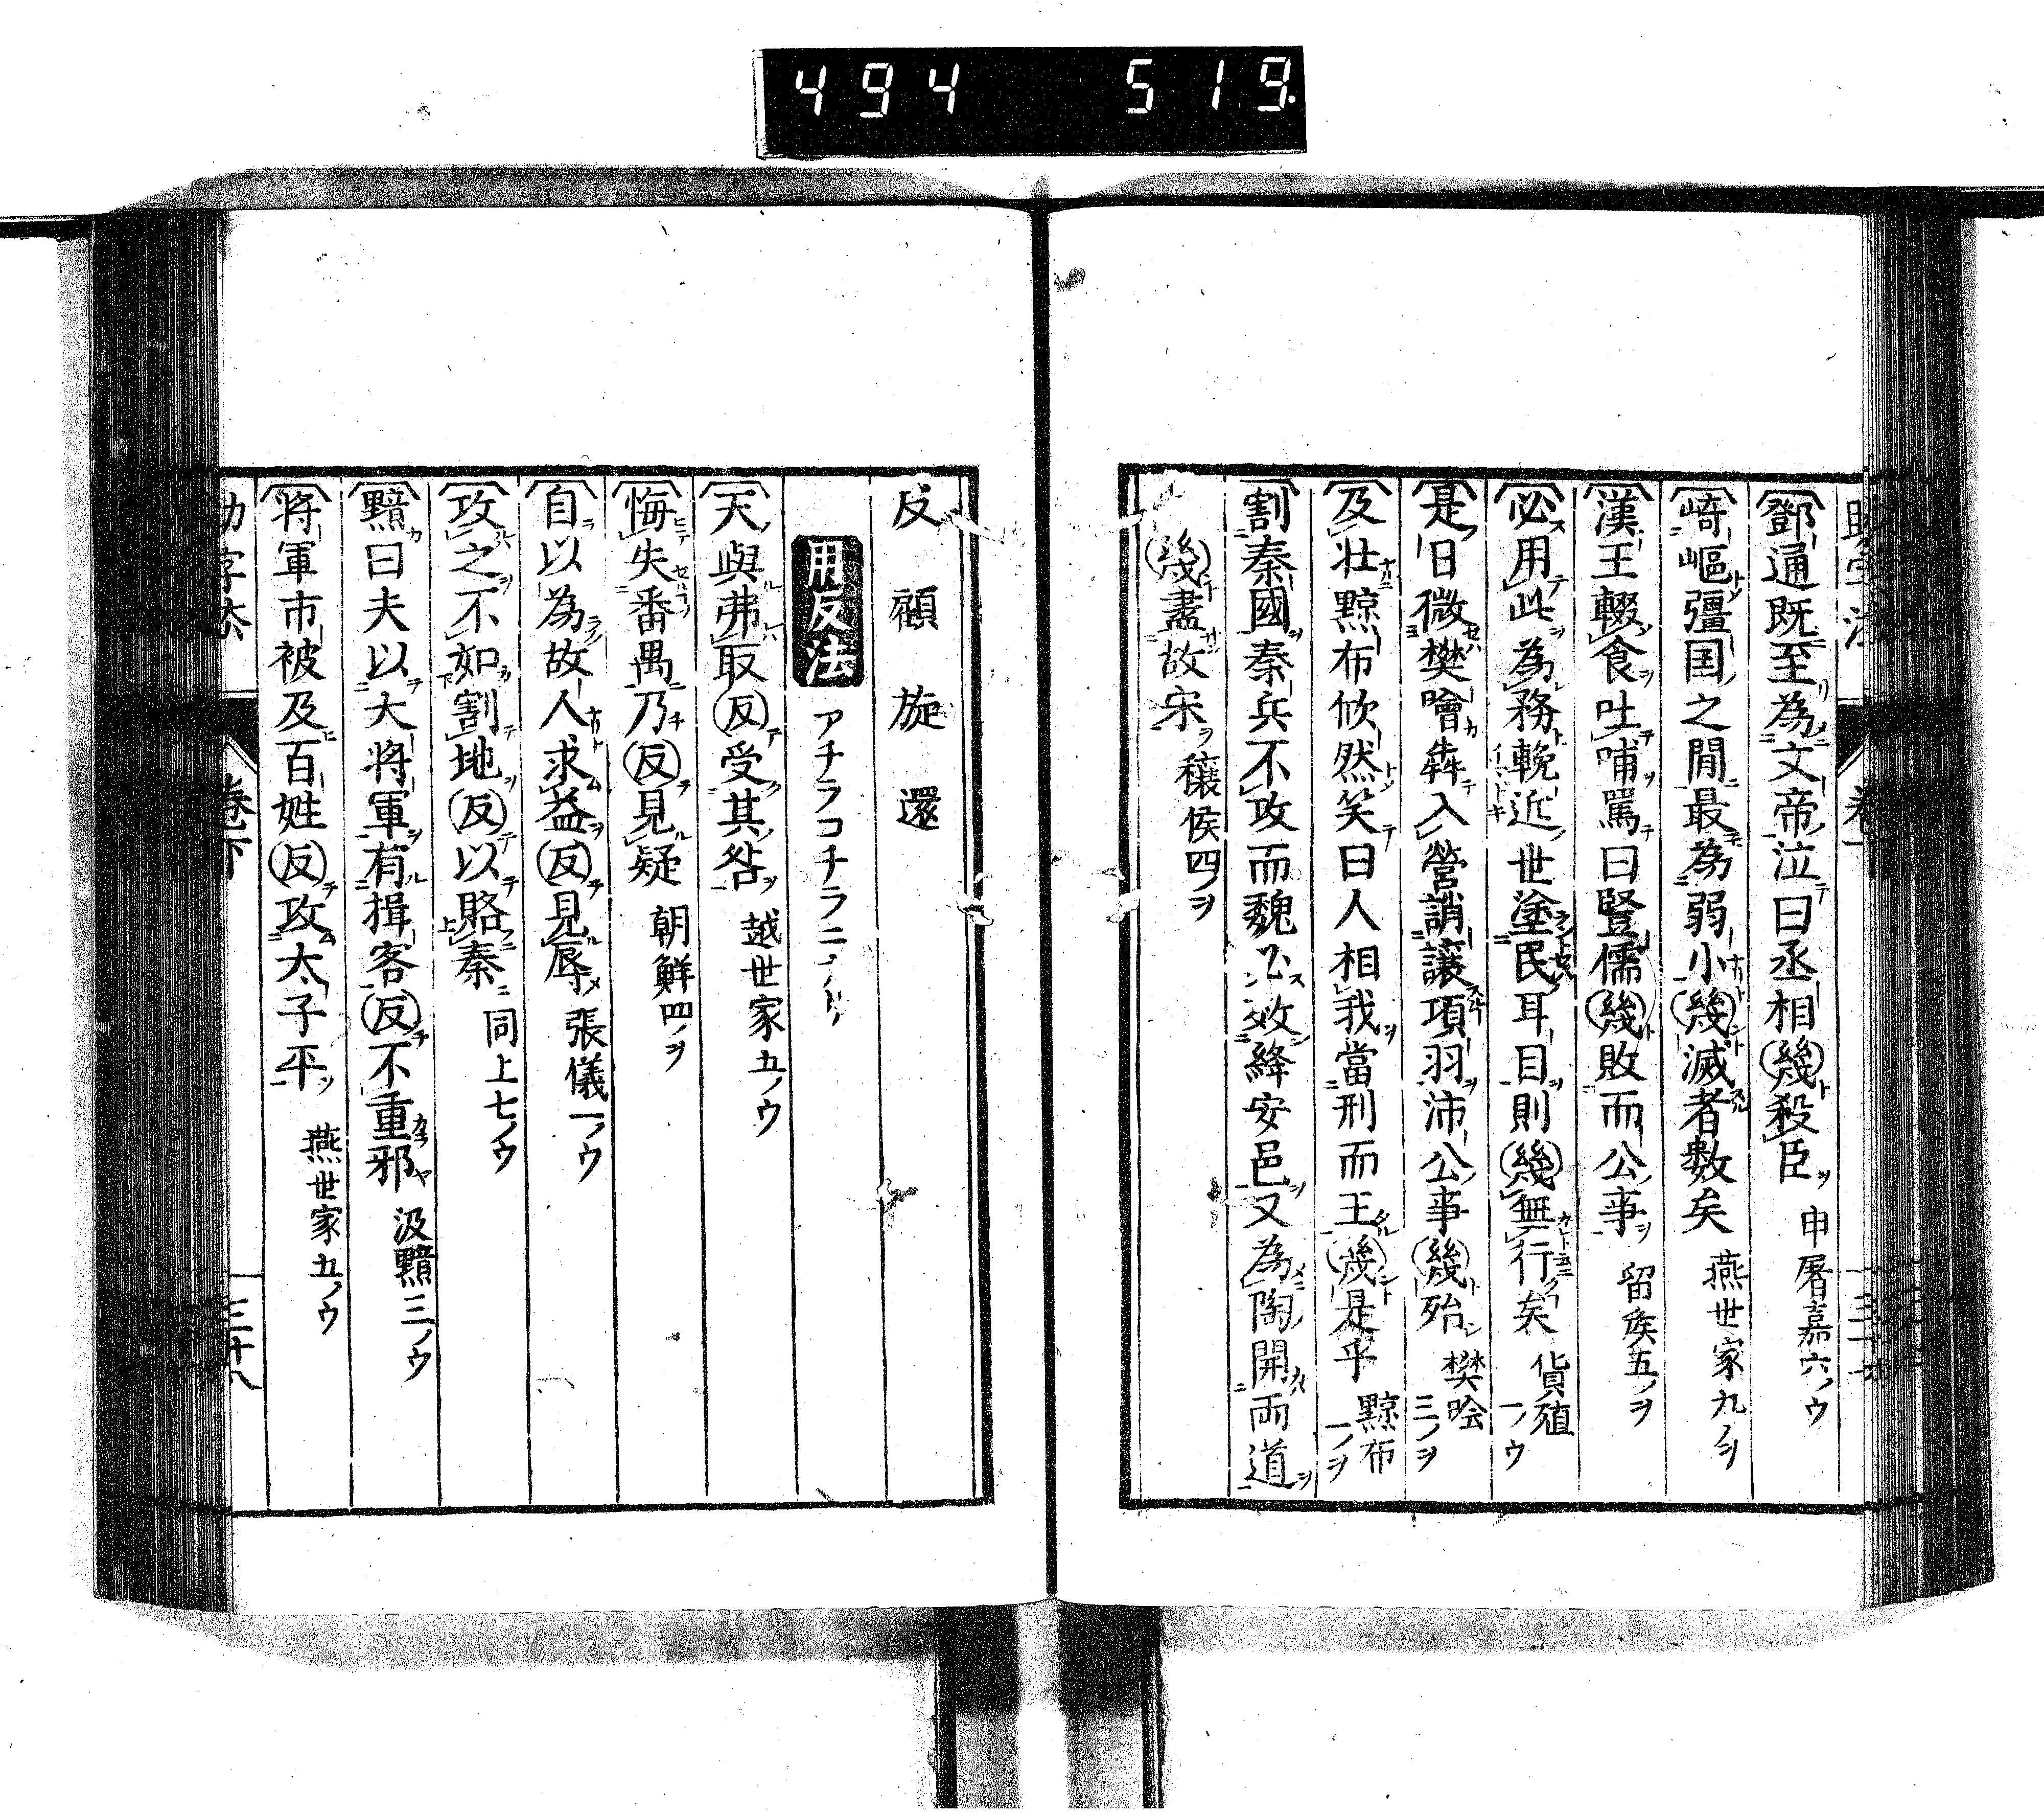 494 519
鄧通既至為文帝泣曰丞相幾殺臣 申屠嘉六ノウ
崎嶇彊国之間最為弱小幾滅者数矣 燕世家九ノヲ
漢王輟食吐哺罵曰豎儒幾敗而公事 留矦五ノヲ
必用此為務輓近世塗民耳目則幾無行矣 貨殖一ノウ
是日微樊噲犇入營誚譲項羽沛公事幾殆 樊噲三ノヲ
及壮黥布欣然笑曰人相我當刑而王幾是乎 黥布一ノヲ
割秦國秦兵不攻而魏必效絳安邑又為陶開兩道
幾盡故宋 穰侯四ノヲ
反 顧 旋 還
用反法 アチラコチラニ
天與弗取反受其咎 越世家五ノウ
悔失番禺乃反見疑 朝鮮四ノヲ
自以為故人求益反見辱 張儀一ノウ
攻之不如割地反以賂秦 同上七ノウ
黯曰夫以大将軍有揖客反不重邪 汲黯三ノウ
将軍市被及百姓反攻太子平 燕世家五ノウ
卷下
三十八